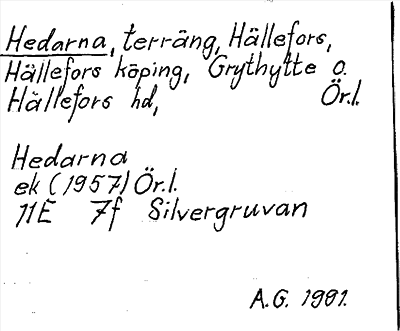 Hedarna, terräng, Hällefors,
Hällefors köping, Grythytte o.
Hällefors hd, Ör.l.
Hedarna
ek (1957) Ör.l.
11E 7f Silvergruvan
A.G. 1991.